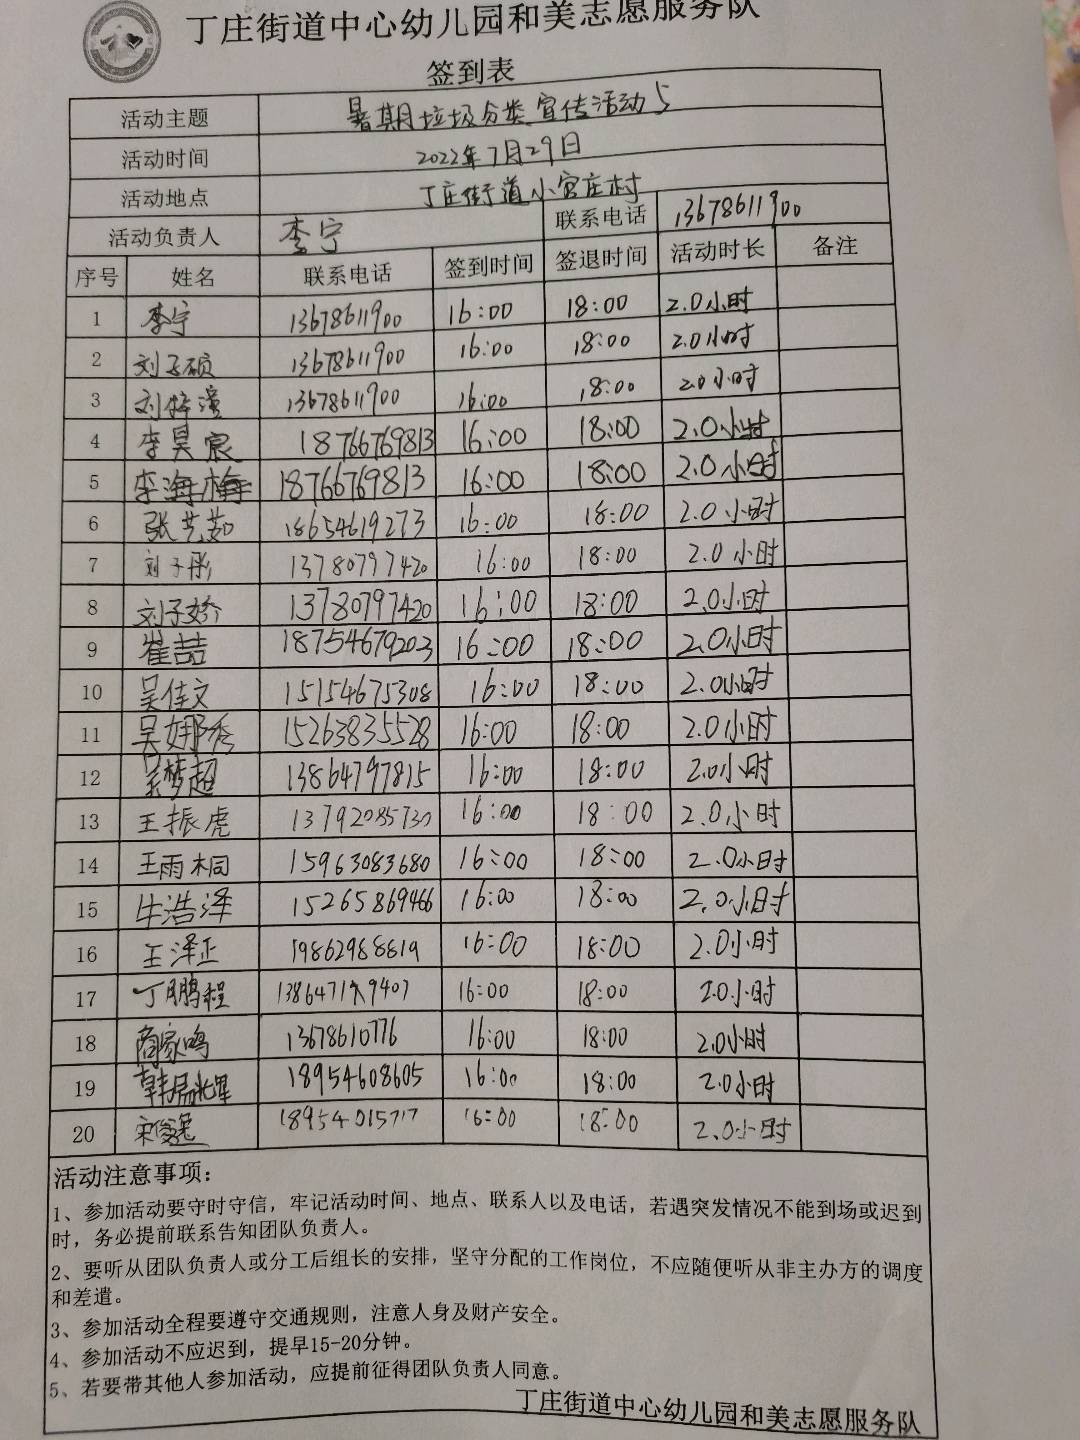 丁庄街道中心幼儿园和美志愿服务队
签到表
活动主题 暑期垃圾分类宣传活动5
活动时间 2022年7月29日
活动地点 丁庄街道小官庄村
活动负责人 李宁 联系电话 13678611900
序号 姓名 联系电话 签到时间 签退时间 活动时长 备注
1 李宁 13678611900 16:00 18:00 2.0小时
2 刘子硕 13678611900 16:00 18:00 2.0小时
3 刘梓潼 13678611900 16:00 18:00 2.0小时
4 李昊宸 18766769813 16:00 18:00 2.0小时
5 李海梅 18766769813 16:00 18:00 2.0小时
6 张艺茹 18654619273 16:00 18:00 2.0小时
7 刘子彤 13780797420 16:00 18:00 2.0小时
8 刘子娇 13780797420 16:00 18:00 2.0小时
9 崔喆 18754679203 16:00 18:00 2.0小时
10 吴佳文 15154675308 16:00 18:00 2.0小时
11 吴娜秀 15263835528 16:00 18:00 2.0小时
12 吴梦超 13864797815 16:00 18:00 2.0小时
13 王振虎 13792085730 16:00 18:00 2.0小时
14 王雨桐 15963083680 16:00 18:00 2.0小时
15 牛浩泽 15265869466 16:00 18:00 2.0小时
16 王泽正 19862988819 16:00 18:00 2.0小时
17 丁鹏程 16:00 18:00 2.0小时
18 商家鸣 13678610776 16:00 18:00 2.0小时
19 18954608605 16:00 18:00 2.0小时
20 宋俊逸 18954015717 16:00 18:00 2.0小时
活动注意事项：
1、参加活动要守时守信，牢记活动时间、地点、联系人以及电话，若遇突发情况不能到场或迟到
时，务必提前联系告知团队负责人。
2、要听从团队负责人或分工后组长的安排，坚守分配的工作岗位，不应随便听从非主办方的调度
和差遣。
3、参加活动全程要遵守交通规则，注意人身及财产安全。
4、参加活动不应迟到，提早15-20分钟。
5、若要带其他人参加活动，应提前征得团队负责人同意。
丁庄街道中心幼儿园和美志愿服务队